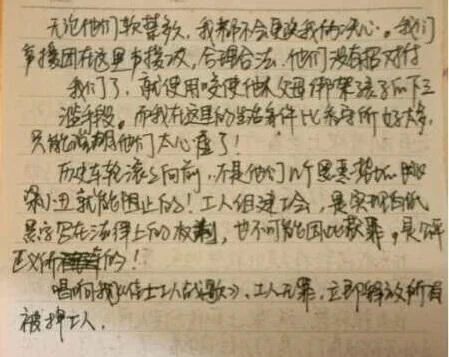 无论他们软禁多久，我都不会更改我的决心。我们
声援团在这里声援佳士，合理合法，他们没有招对付
我们了，就使用唆使他人父母绑架孩子的下三
滥手段。而我在这里的生活条件比看守所好太多，
只能说明他们太心虚了！
历史车轮滚滚向前，不是他们几个黑恶势力 跳
梁小丑就能阻止的！工人组建工会，是实现白纸
黑字写在法律上的权利，也不可能因此获罪。是
正义所的！
唱响《佳士工人战歌》，工人无罪，立即释放所有
被押工人。